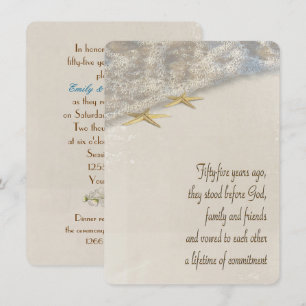 In honor
fifty-five year
Emily &
as they re
on Saturday
Two thou
at six o'clo
1255
You
Dinner re
the ceremony
1266
Fifty-five years ago,
they stood before God,
family and friends
and vowed to each other
a lifetime of commitment